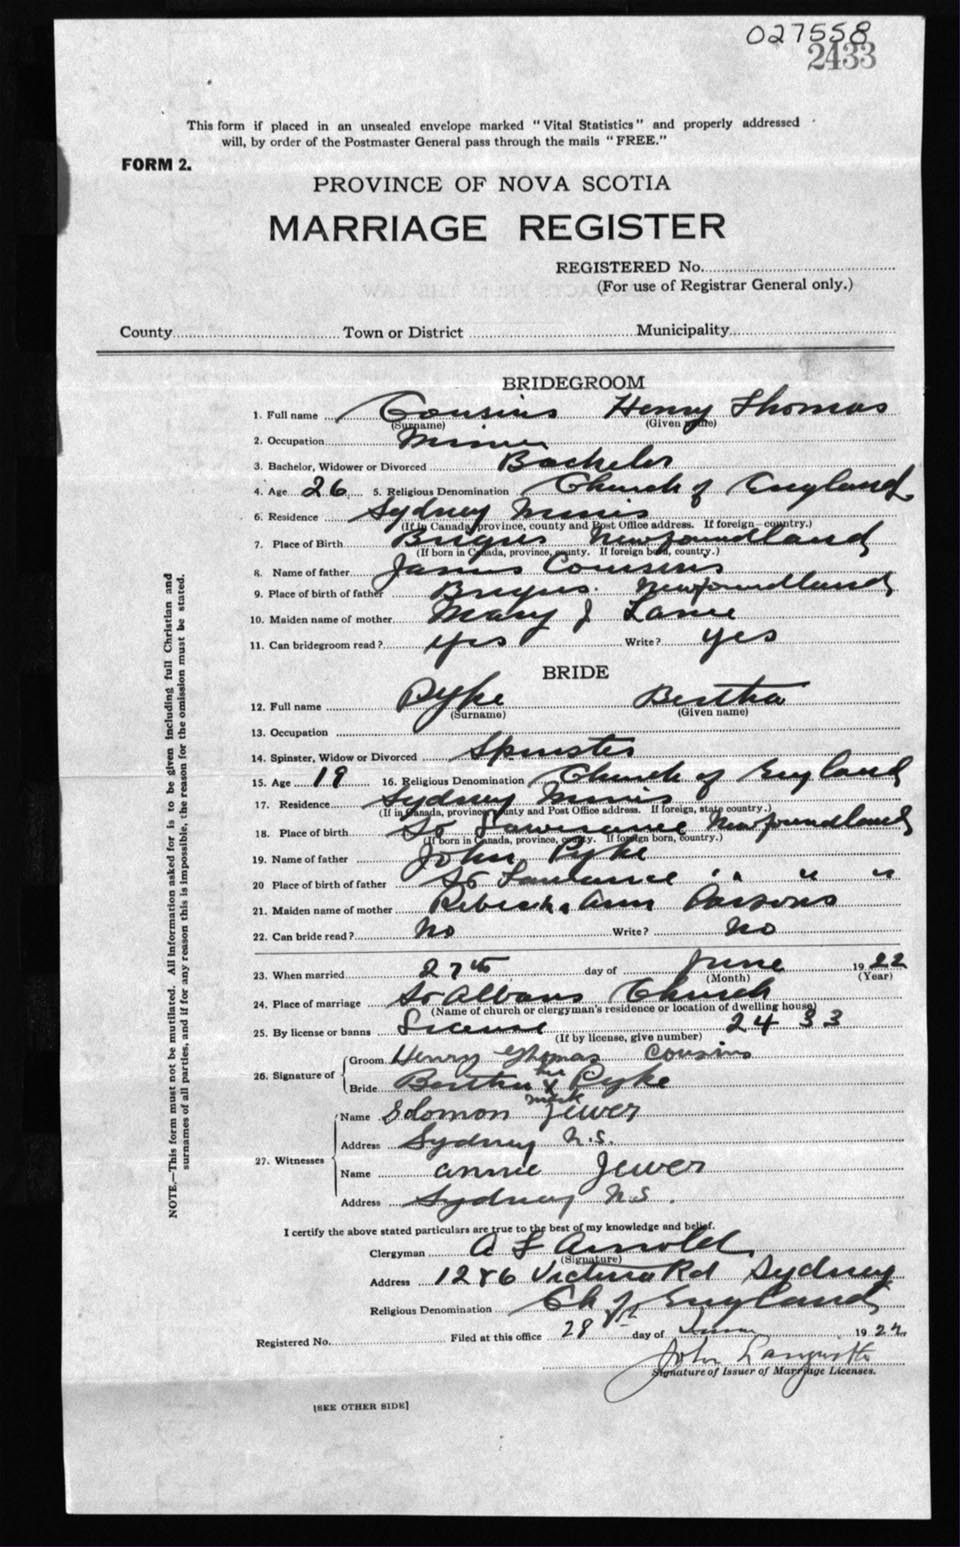 027558
2433
This form if placed in an unsealed envelope marked "Vital Statistics" and properly addressed
will, by order of the Postmaster General pass through the mails "FREE."
FORM 2.
PROVINCE OF NOVA SCOTIA
MARRIAGE REGISTER
REGISTERED No.
(For use of Registrar General only.)
County Town or District Municipality
BRIDEGROOM
1. Full name Cousins Henry Thomas
(Surname) (Given name)
2. Occupation Miner
3. Bachelor, Widower or Divorced Bachelor
4. Age 26 5. Religious Denomination Church of England
6. Residence Sydney Mines
(If in Canada, province, county and Post Office address. If foreign—country.)
7. Place of Birth Brigus Newfoundland
(If born in Canada, province, county. If foreign born, country.)
8. Name of father James Cousins
9. Place of birth of father Brigus. Newfoundland
10. Maiden name of mother Mary J
11. Can bridegroom read? yes Write? yes
BRIDE
12. Full name Pyke Bertha
(Surname) (Given name)
13. Occupation
14. Spinster, Widow or Divorced Spinster
15. Age 19 16. Religious Denomination Church of England
17. Residence Sydney Mines
(If in Canada, province, county and Post Office address. If foreign, state country.)
18. Place of birth St Lawrence Newfoundland
(If born in Canada, province, county. If foreign born, country.)
19. Name of father John Pyke
20 Place of birth of father St Lawrence " " "
21. Maiden name of mother Rebecka Ann Parsons
22. Can bride read? No Write? No
23. When married 27th day of June 1922
(Month) (Year)
24. Place of marriage St Albans Church
(Name of church or clergyman's residence or location of dwelling house)
25. By license or banns License 2433
(If by license, give number)
26. Signature of Groom Henry Thomas Cousins
Bride Bertha her x mark Pyke
27. Witnesses Name Solomon Jewer
Address Sydney N.S.
Name Annie Jewer
Address Sydney N.S.
I certify the above stated particulars are true to the best of my knowledge and belief.
Clergyman A F Arnold
(Signature)
Address 1286 Victoria Rd Sydney
Religious Denomination Ch of England
Registered No. Filed at this office 28th day of June 1922
John
Signature of Issuer of Marriage Licenses.
[SEE OTHER SIDE]
NOTE.—This form must not be mutilated. All information asked for is to be given including full Christian and
surnames of all parties, and if for any reason this is impossible, the reason for the omission must be stated.